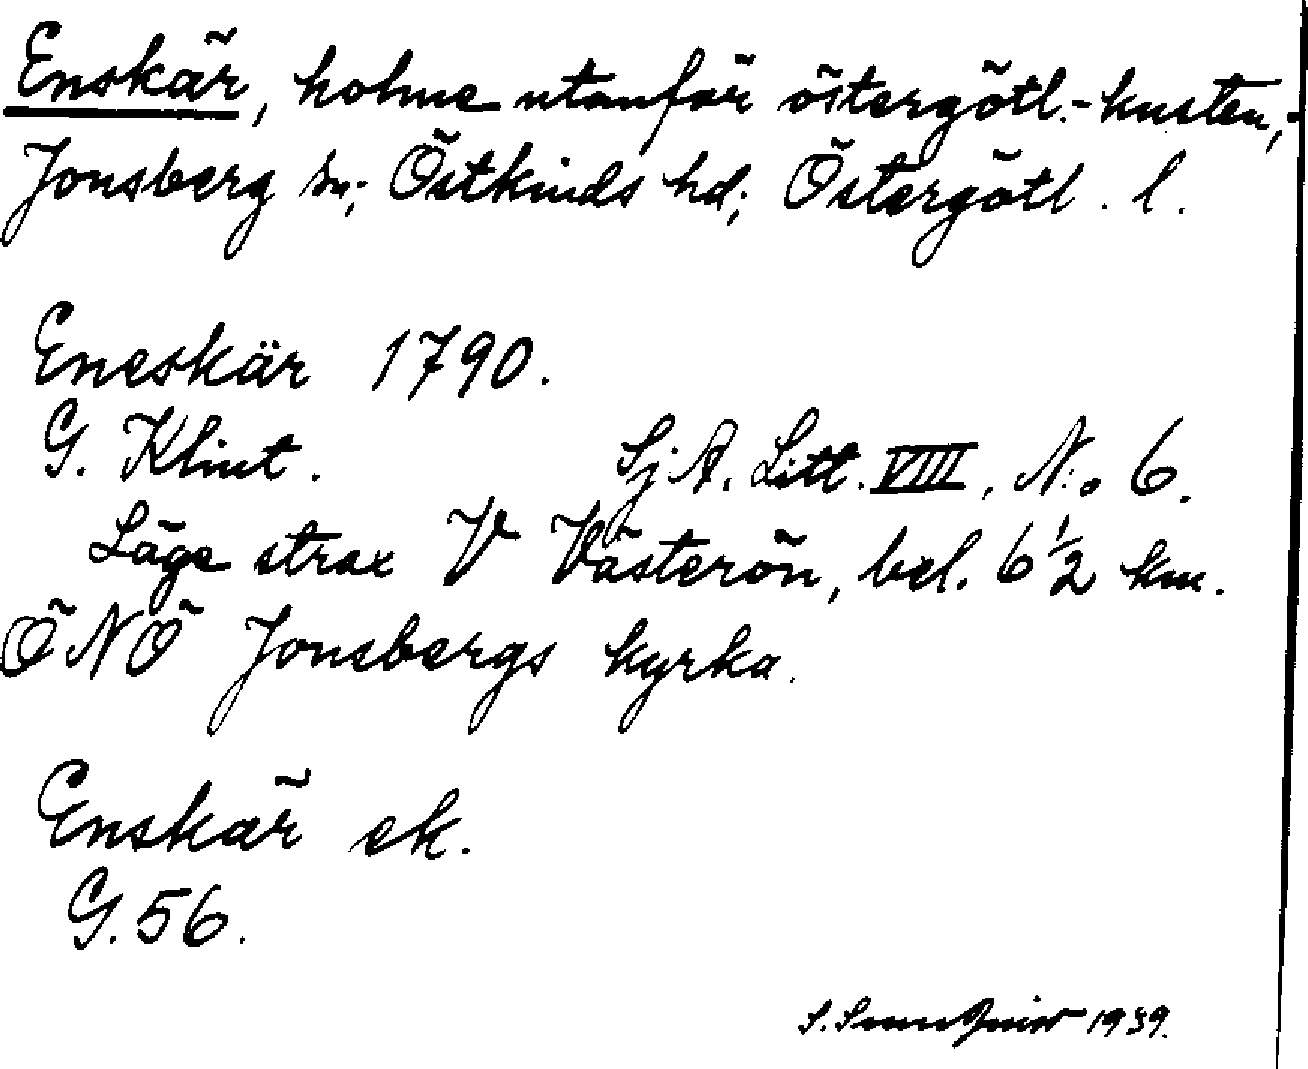 Enskär, holme utanför östergötl.-kusten,
Jonsberg sn; Östkinds hd; Östergötl. l.
Eneskär 1790.
G. Klint. Sj. A. Litt. VIII, N:o 6.
Läge strax V Västerön, bel. 6 1/2 km.
ÖNÖ Jonsbergs kyrka.
Enskär ek.
G. 56.
S. 1939.